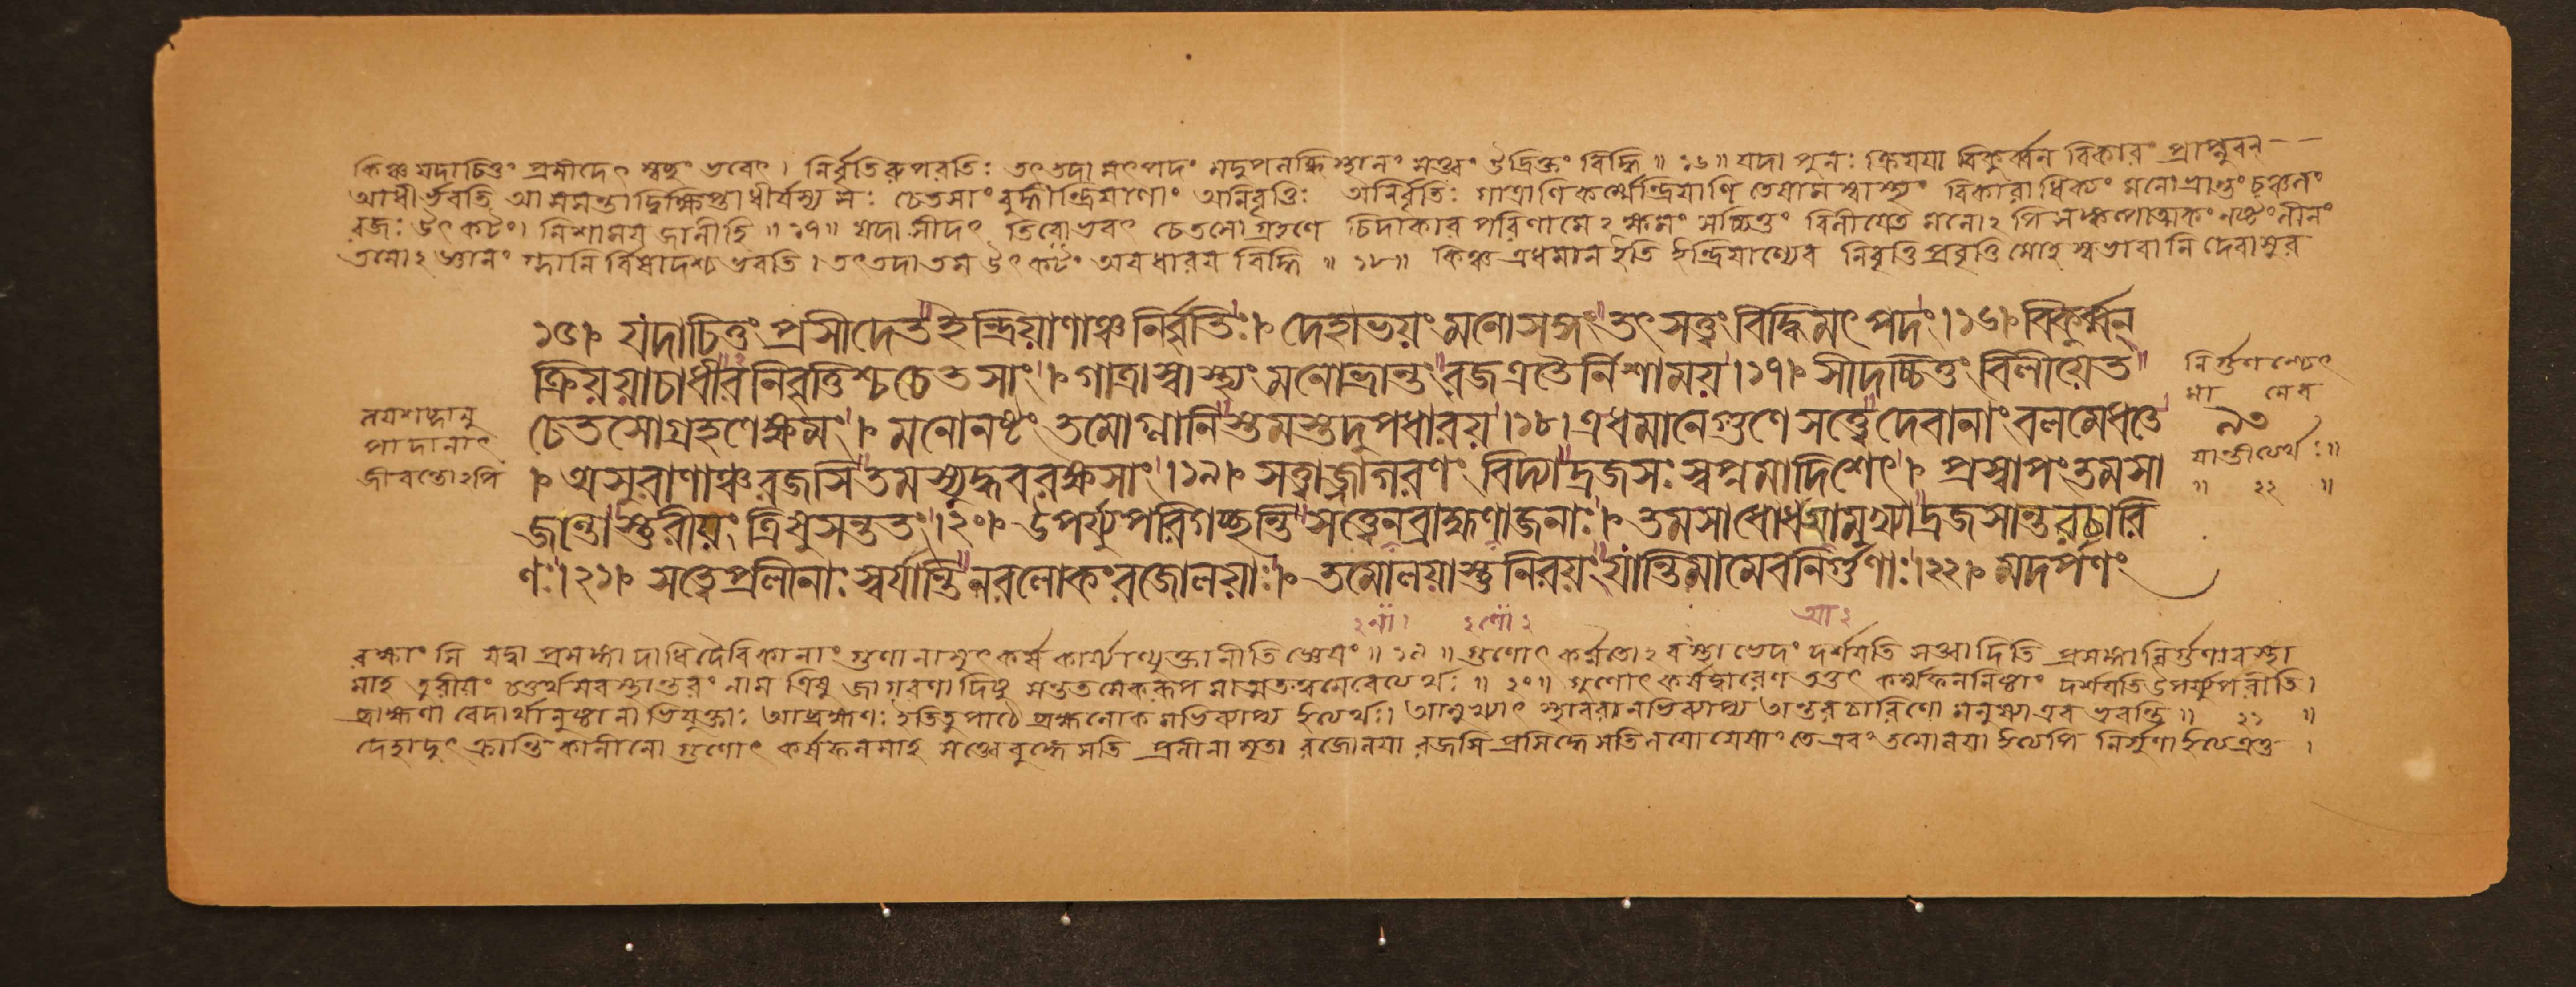 কিঞ্চ যদাচিত্তং প্রসীদেৎ স্বচ্ছং ভবেৎ। নির্বৃতিরুপরতিঃ তৎ তদা মৎপদং মদুপলব্ধিস্থানং সত্ত্বং উদ্রিক্তং বিদ্ধি॥১৬॥ যদা পুনঃ ক্রিয়য়া বিকুর্ব্বন বিকারং প্রাপ্নুবন
আধীর্ভবতি আ সমন্তাদ্বিক্ষিপ্তাধীর্যস্য সঃ চেতসাং বুদ্ধীন্দ্রিয়াণাং অনিবৃত্তিঃ অনির্বৃতিঃ গাত্রাণি কর্ম্মেন্দ্রিয়াণি তেষামস্বাস্থ্যং বিকারাধিক্যং মনোভ্রান্তং চঞ্চলং
রজঃ উৎকটং। নিশাময় জানীহি॥১৭॥ যদা সীদৎ তিরোভবৎ চেতসো গ্রহণে চিদাকার পরিণামেঽক্ষমং সচ্চিত্তং বিলীয়েত মনোঽপি সঙ্কল্পাত্মকং নষ্টং লীনং
তমোঽজ্ঞানং গ্লানি র্বিষাদশ্চ ভবতি। তৎ তদা তম উৎকটং অবধারয় বিদ্ধি॥১৮॥ কিঞ্চ এধমান ইতি ইন্দ্রিয়াণ্যেব নিবৃত্তি প্রবৃত্তি মোহ স্বভাবানি দেবাসুর
১৫। যদাচিত্তং প্রসীদেত ইন্দ্রিয়াণাঞ্চ নির্বৃত্তিঃ। দেহাভয়ং মনোসঙ্গং তৎ সত্ত্বং বিদ্ধি মৎ পদং।১৬। বিকুর্ব্বন্
ক্রিয়য়াচাধীর নিবৃত্তিশ্চ চেতসাং। গাত্রাস্বাস্থ্যং মনোভ্রান্তং রজ এতৈর্নিশাময়।১৭। সীদচ্চিত্তং বিলীয়েত
চেতসোগ্রহণেক্ষমং। মনোনষ্টং তমোগ্লানিস্তমস্তদুপধারয়।১৮। এধমানেগুণে সত্ত্বে দেবানাং বলমেধতে
। অসুরাণাঞ্চ রজসি তমস্যুদ্ধব রক্ষসাং।১৯। সত্ত্বাজ্জাগরণং বিদ্যাদ্রজসঃ স্বপ্নমাদিশেৎ। প্রস্বাপং তমসা
জন্তোস্তুরীয়ং ত্রিষুসন্ততং।২০। উপর্য্যুপরিগচ্ছন্তি সত্ত্বেনব্রাহ্মণাজনাঃ। তমসাধোধআমুখ্যাদ্রজসান্তরচারি
ণঃ।২১। সত্ত্বেপ্রলীনাঃ স্বর্যান্তি নরলোকংরজোলয়াঃ। তমোলয়াস্তুনিরয়ং যান্তিমামেবনির্গুণাঃ।২২। মদর্পণং
লয়শব্দানু
পাদানাৎ
জীবন্তোঽপি
নির্গুণাশ্চেৎ
মা মেব
৯৩
যান্তীত্যর্থঃ॥
॥ ২২ ॥
আ২
রক্ষাংসি যদ্বা প্রসঙ্গাদাধিদৈবিকানাং গুণানামুৎকর্ষ কার্য্যাণ্যুক্তানীতি জ্ঞেয়ং॥১৯॥ গুণোৎকর্ষতোঽবস্থা ভেদং দর্শয়তি সত্ত্বাদিতি প্রসঙ্গান্নির্গুণাবস্থা
মাহ তুরীয়ং চতুর্থমবস্থান্তরং নাম ত্রিষু জাগরণাদিষু সন্ততমেকরূপমাত্মতত্ত্বমেবেত্যর্থঃ॥২০॥ গুণোৎকর্ষদ্বারেণ তত্তৎ কর্ম্মফলনিষ্ঠাং দর্শয়তি উপর্য্যুপরীতি।
ব্রাহ্মণা বেদার্থানুষ্ঠানাভিযুক্তাঃ আব্রহ্মণঃ ইতি তু পাঠে ব্রহ্মলোকমভিব্যাপ্য ইত্যর্থঃ। আমুখ্যাৎ স্থাবরানভিব্যাপ্য অন্তরচারিণো মনুষ্যা এব ভবন্তি॥ ২১ ॥
দেহাদুৎক্রান্তি কালীনো গুণোৎকর্ষফলমাহ সত্ত্বে বৃদ্ধে সতি প্রলীনা মৃতা রজোলয়া রজসি প্রসিদ্ধে সতি লয়ো যেষাং তে এবং তমোলয়া ইত্যপি নির্গুণা ইত্যেতু।